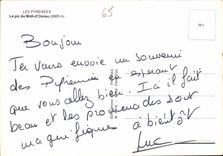 LES PYRÉNÉES
Le pic du Midi-d'Ossau (2885 m)
65
Bonjour
Je vous envoie un souvenir
des Pyrénées en espérant
que vous allez bien. Ici il fait
beau et les promenades sont
magnifiques à bientôt
Luc